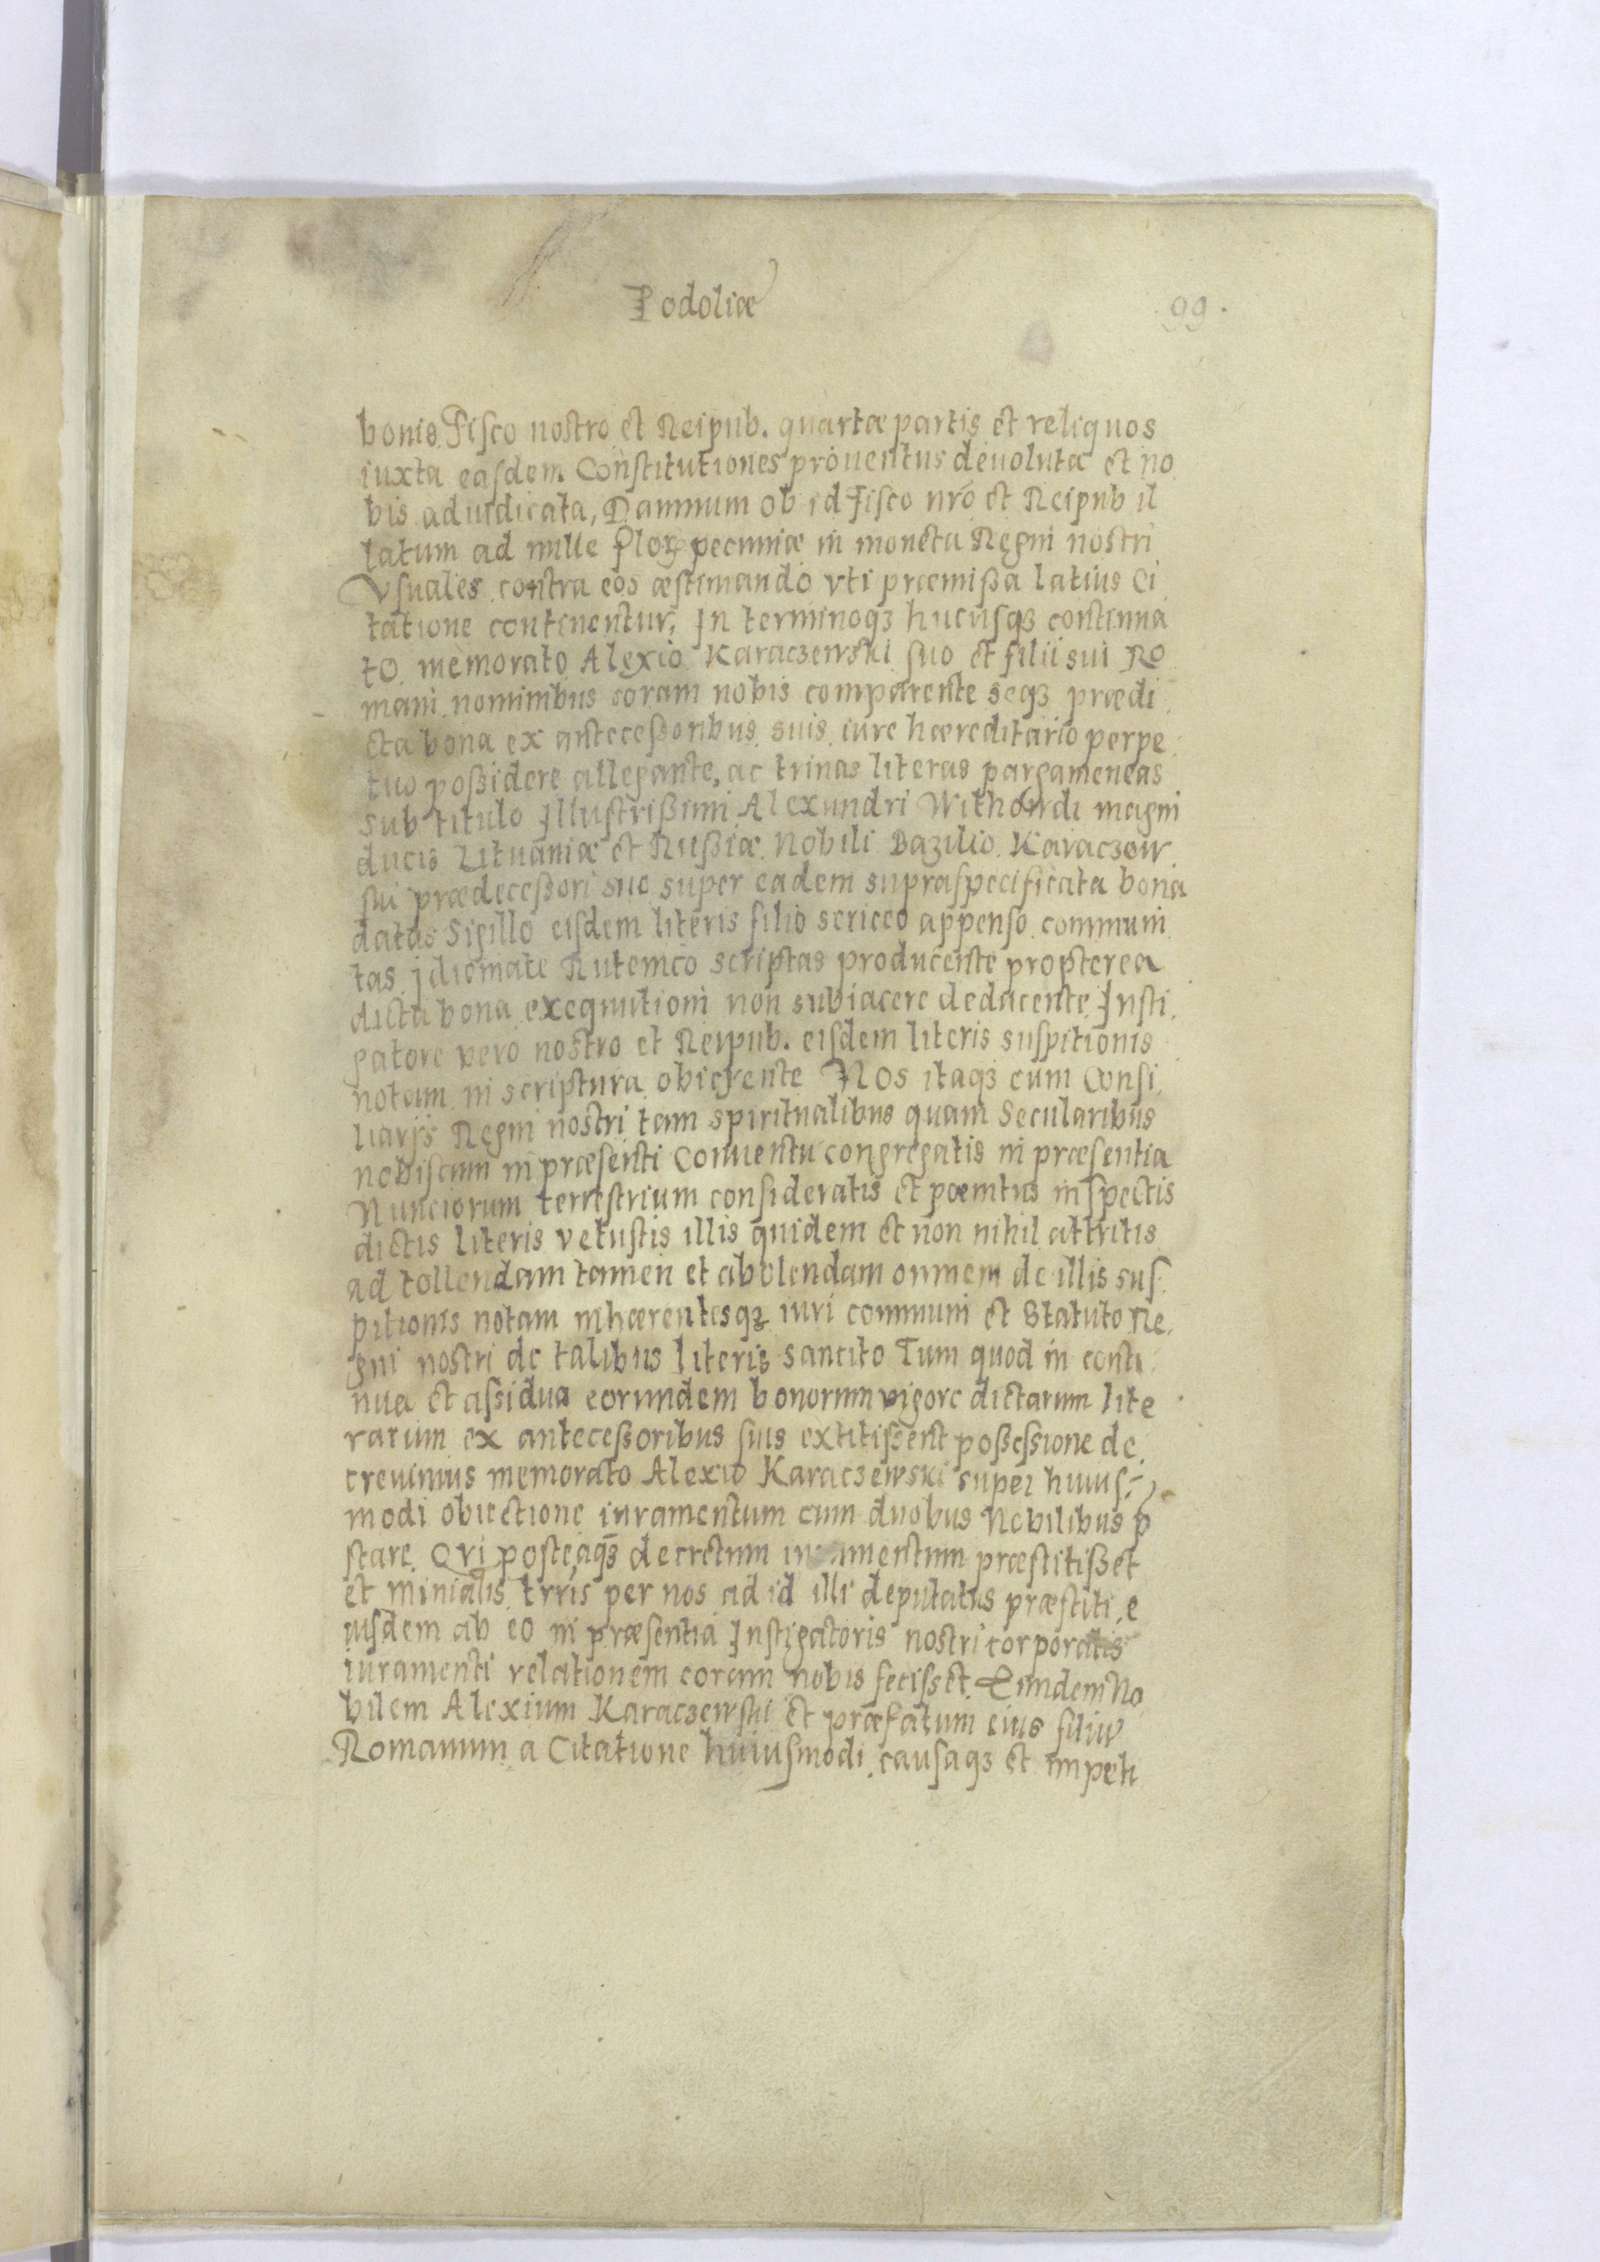 Podoliæ
99.
bonis Fisco nostro et Reipub. quartæ partis et reliquos
iuxta easdem Constitutiones prouentus deuoluta et no
bis adiudicata, Damnum ob id fisco nrõ et Reipub il
latum ad mille Floꝝ pecuniæ in moneta Regni nostri
Vsuales contra eos æstimando vti præmißa latius Ci
tatione continentur, In terminoqꝫ hucusqꝫ continua
to memorato Alexio Karaczewski suo et filii sui Ro
mani nominibus coram nobis comparente seqꝫ prædi
cta bona ex anteceßoribus suis iure hæreditario perpe
tuo poßidere allegante, ac trinas literas pargameneas
sub titulo Illustrißimi Alexandri Withowdi magni
ducis Lituaniæ et Rußiæ Nobili Bazilio Karaczow
ski prædeceßori suo super eadem supraspecificata bona
datas Sigillo eisdem literis filio sericeo appenso communi
tas Idiomate Rutenico scriptas producente propterea
dicta bona exequutioni non subiacere deducente Insti
gatore vero nostro et Reipub. eisdem literis suspitionis
notam in scriptura obiciente Nos itaqꝫ cum Consi
liarijs Regni nostri tam spiritualibus quam Secularibus
nobiscum in præsenti Conuentu congregatis in præsentia
Nunciorum terrestrium consideratis et pœnitus inspectis
dictis literis vetustis illis quidem et non nihil attritis
ad tollendam tamen et abolendam omnem de illis sus
pitionis notam inhærentesqꝫ iuri communi et Statuto Re
gni nostri de talibus literis sancito Tum quod in conti
nua et aßidua eorundem bonorum vigore dictarum lite
rarum ex anteceßoribus suis extitißent poßessione de
creuimus memorato Alexio Karaczewski super huius
modi obiectione iuramentum cum duobus Nobilibus p
stare Qvi posteaqꝫ decretum iuramentum præstitißet
et Minialis trris per nos ad id illi deputatus præstiti e
iusdem ab eo in præsentia Instigatoris nostri corporalis
iuramenti relationem coram nobis fecisset Eundem No
bilem Alexium Karaczewski et præfatum eius filiũ
Romanum a Citatione huiusmodi causaqꝫ et impeti